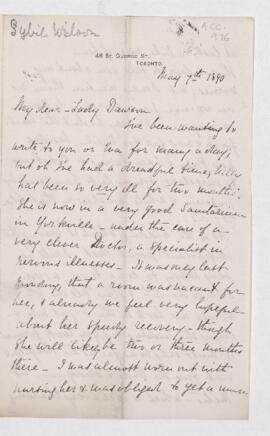 Sybil Wilson
ACC.
976
46 St. George St.
TORONTO.
May 7th 1890
My dear Lady Dawson
I've been wanting to
write to you or Eva for many a day,
but oh I've had a dreadful time,
has been so very ill for two months.
She is now in a very good Sanitarium
in Yorkville – under the care of a
very clever Doctor, a specialist in
nervous illnesses – It was only last
that a room was vacant for
her, & already we feel very hopeful
about her speedy recovery – though
she will likely be two or three months
there – I was almost worn out with
nursing her & was obliged to get a nurse